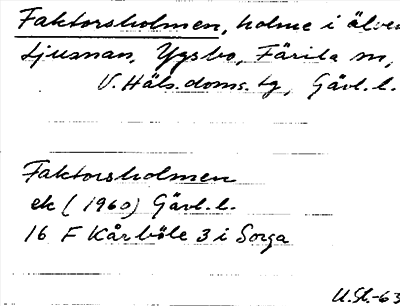 Faktorsholmen, holme i älven
Ljusnan, Ygsbo, Färila sn,
V. Häls. doms. tg, Gävl. l.
Faktorsholmen
ek (1960) Gävl. l.
16 F Kårböle 3 i Sorga
U.Sl.-63